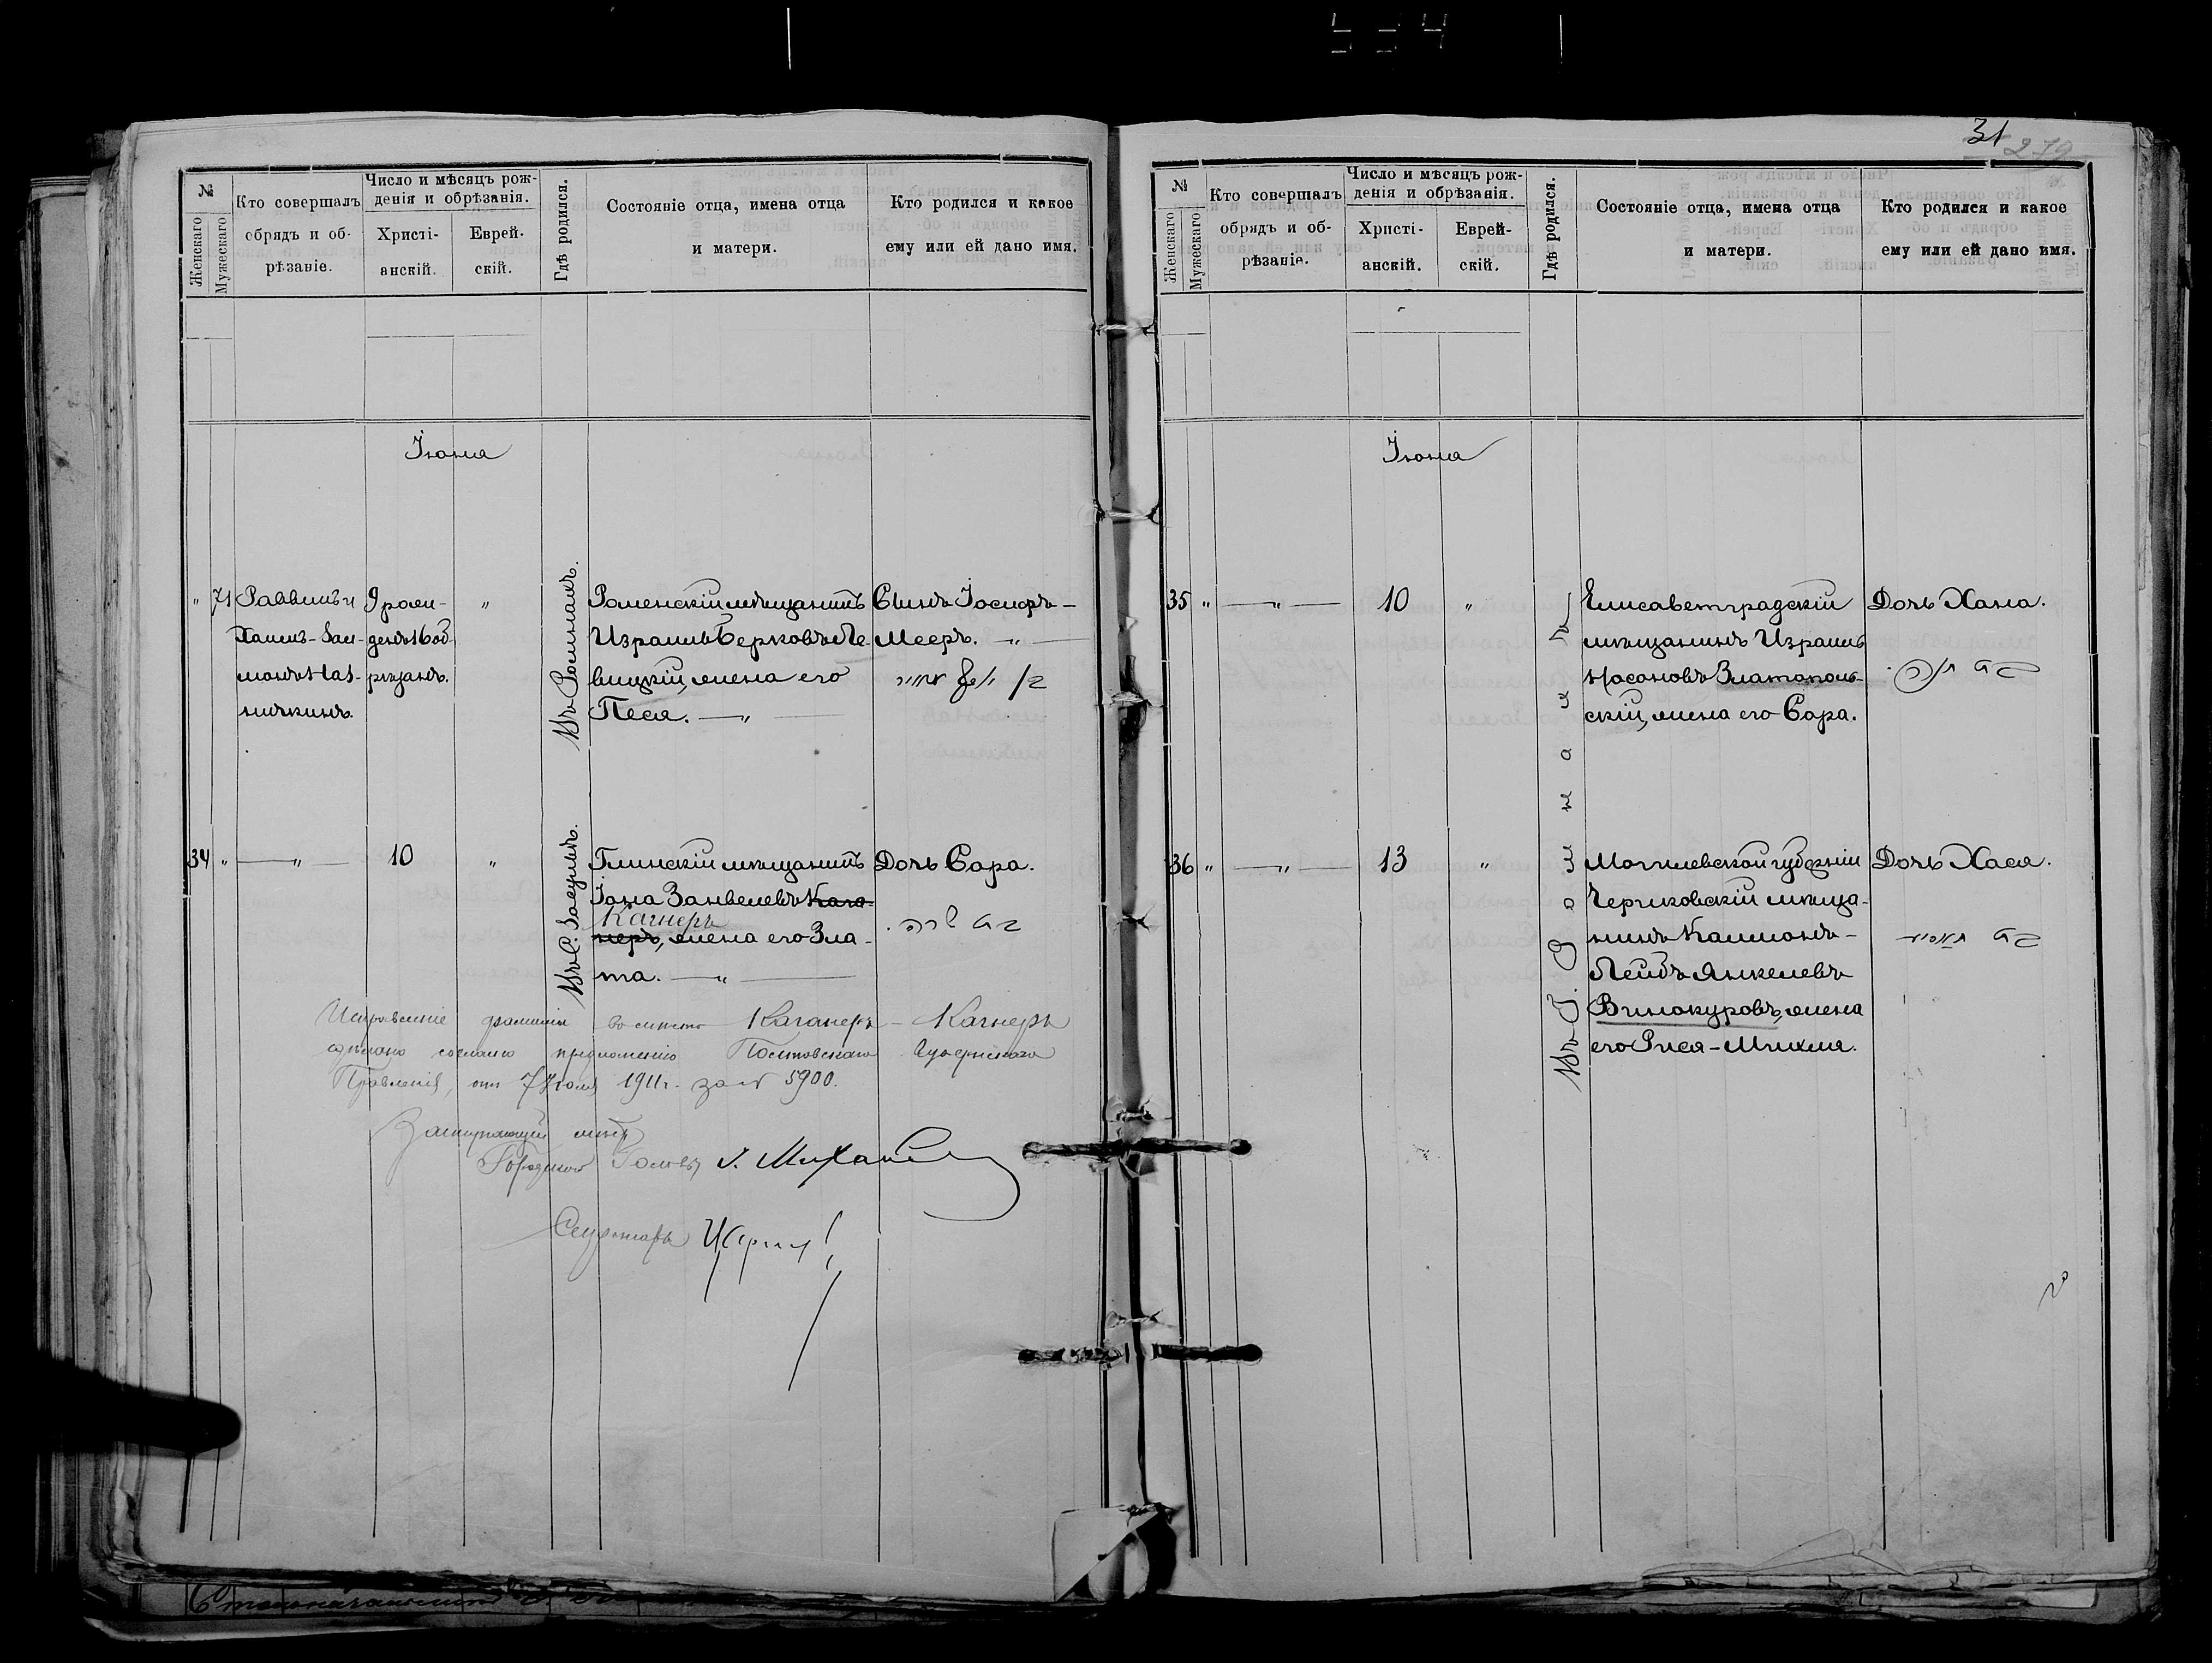 534
31
279
№
Женскаго
Мужескаго
Кто совершалъ
обрядъ и об-
рѣзаніе.
Число и мѣсяцъ рож-
денія и обрѣзанія.
Христі-
анскій.
Еврей-
скій.
Гдѣ родился.
Состояніе отца, имена отца
и матери.
Кто родился и какое
ему или ей дано имя.
Іюня
" 71
Раввинъ и
Хаимъ-Зал-
монъ
9 рож-
денъ 16 об-
рѣзанъ.
"
Въ Ромнахъ.
Роменскій мѣщанинъ
Израиль Берковъ Ле-
вицкій, жена его
Песя. — " —
Сынъ Іосифъ-
Мееръ. — " —
34 "
— " —
10
"
Глинскій мѣщанинъ
Іона Занвелевъ Кага-
Кагнеръ
неръ, жена его Зла-
та. — " —
Дочь Сара.
Исправленіе фамиліи вместо Каганеръ - Кагнеръ
сдѣлано согласно предложенію Полтовскаго Губернскаго
Правленія, отъ 7 Іюля 1911 г. за № 5900.
Городского Головы
Секретарь
№
Женскаго
Мужескаго
Кто совершалъ
обрядъ и об-
рѣзаніе.
Число и мѣсяцъ рож-
денія и обрѣзанія.
Христі-
анскій.
Еврей-
скій.
Гдѣ родился.
Состояніе отца, имена отца
и матери.
Кто родился и какое
ему или ей дано имя.
Іюня
35 "
— " —
10
"
Елисаветградскій
мѣщанинъ Израиль
Носоновъ Златополь-
скій, жена его Сара.
Дочь Хана.
36 "
— " —
13
"
Могилевской губерніи
Чериковскій мѣща-
нинъ Калмонъ-
Лейбъ Янкелевъ
Винокуровъ, жена
его Рися-Михля.
Дочь Хася.